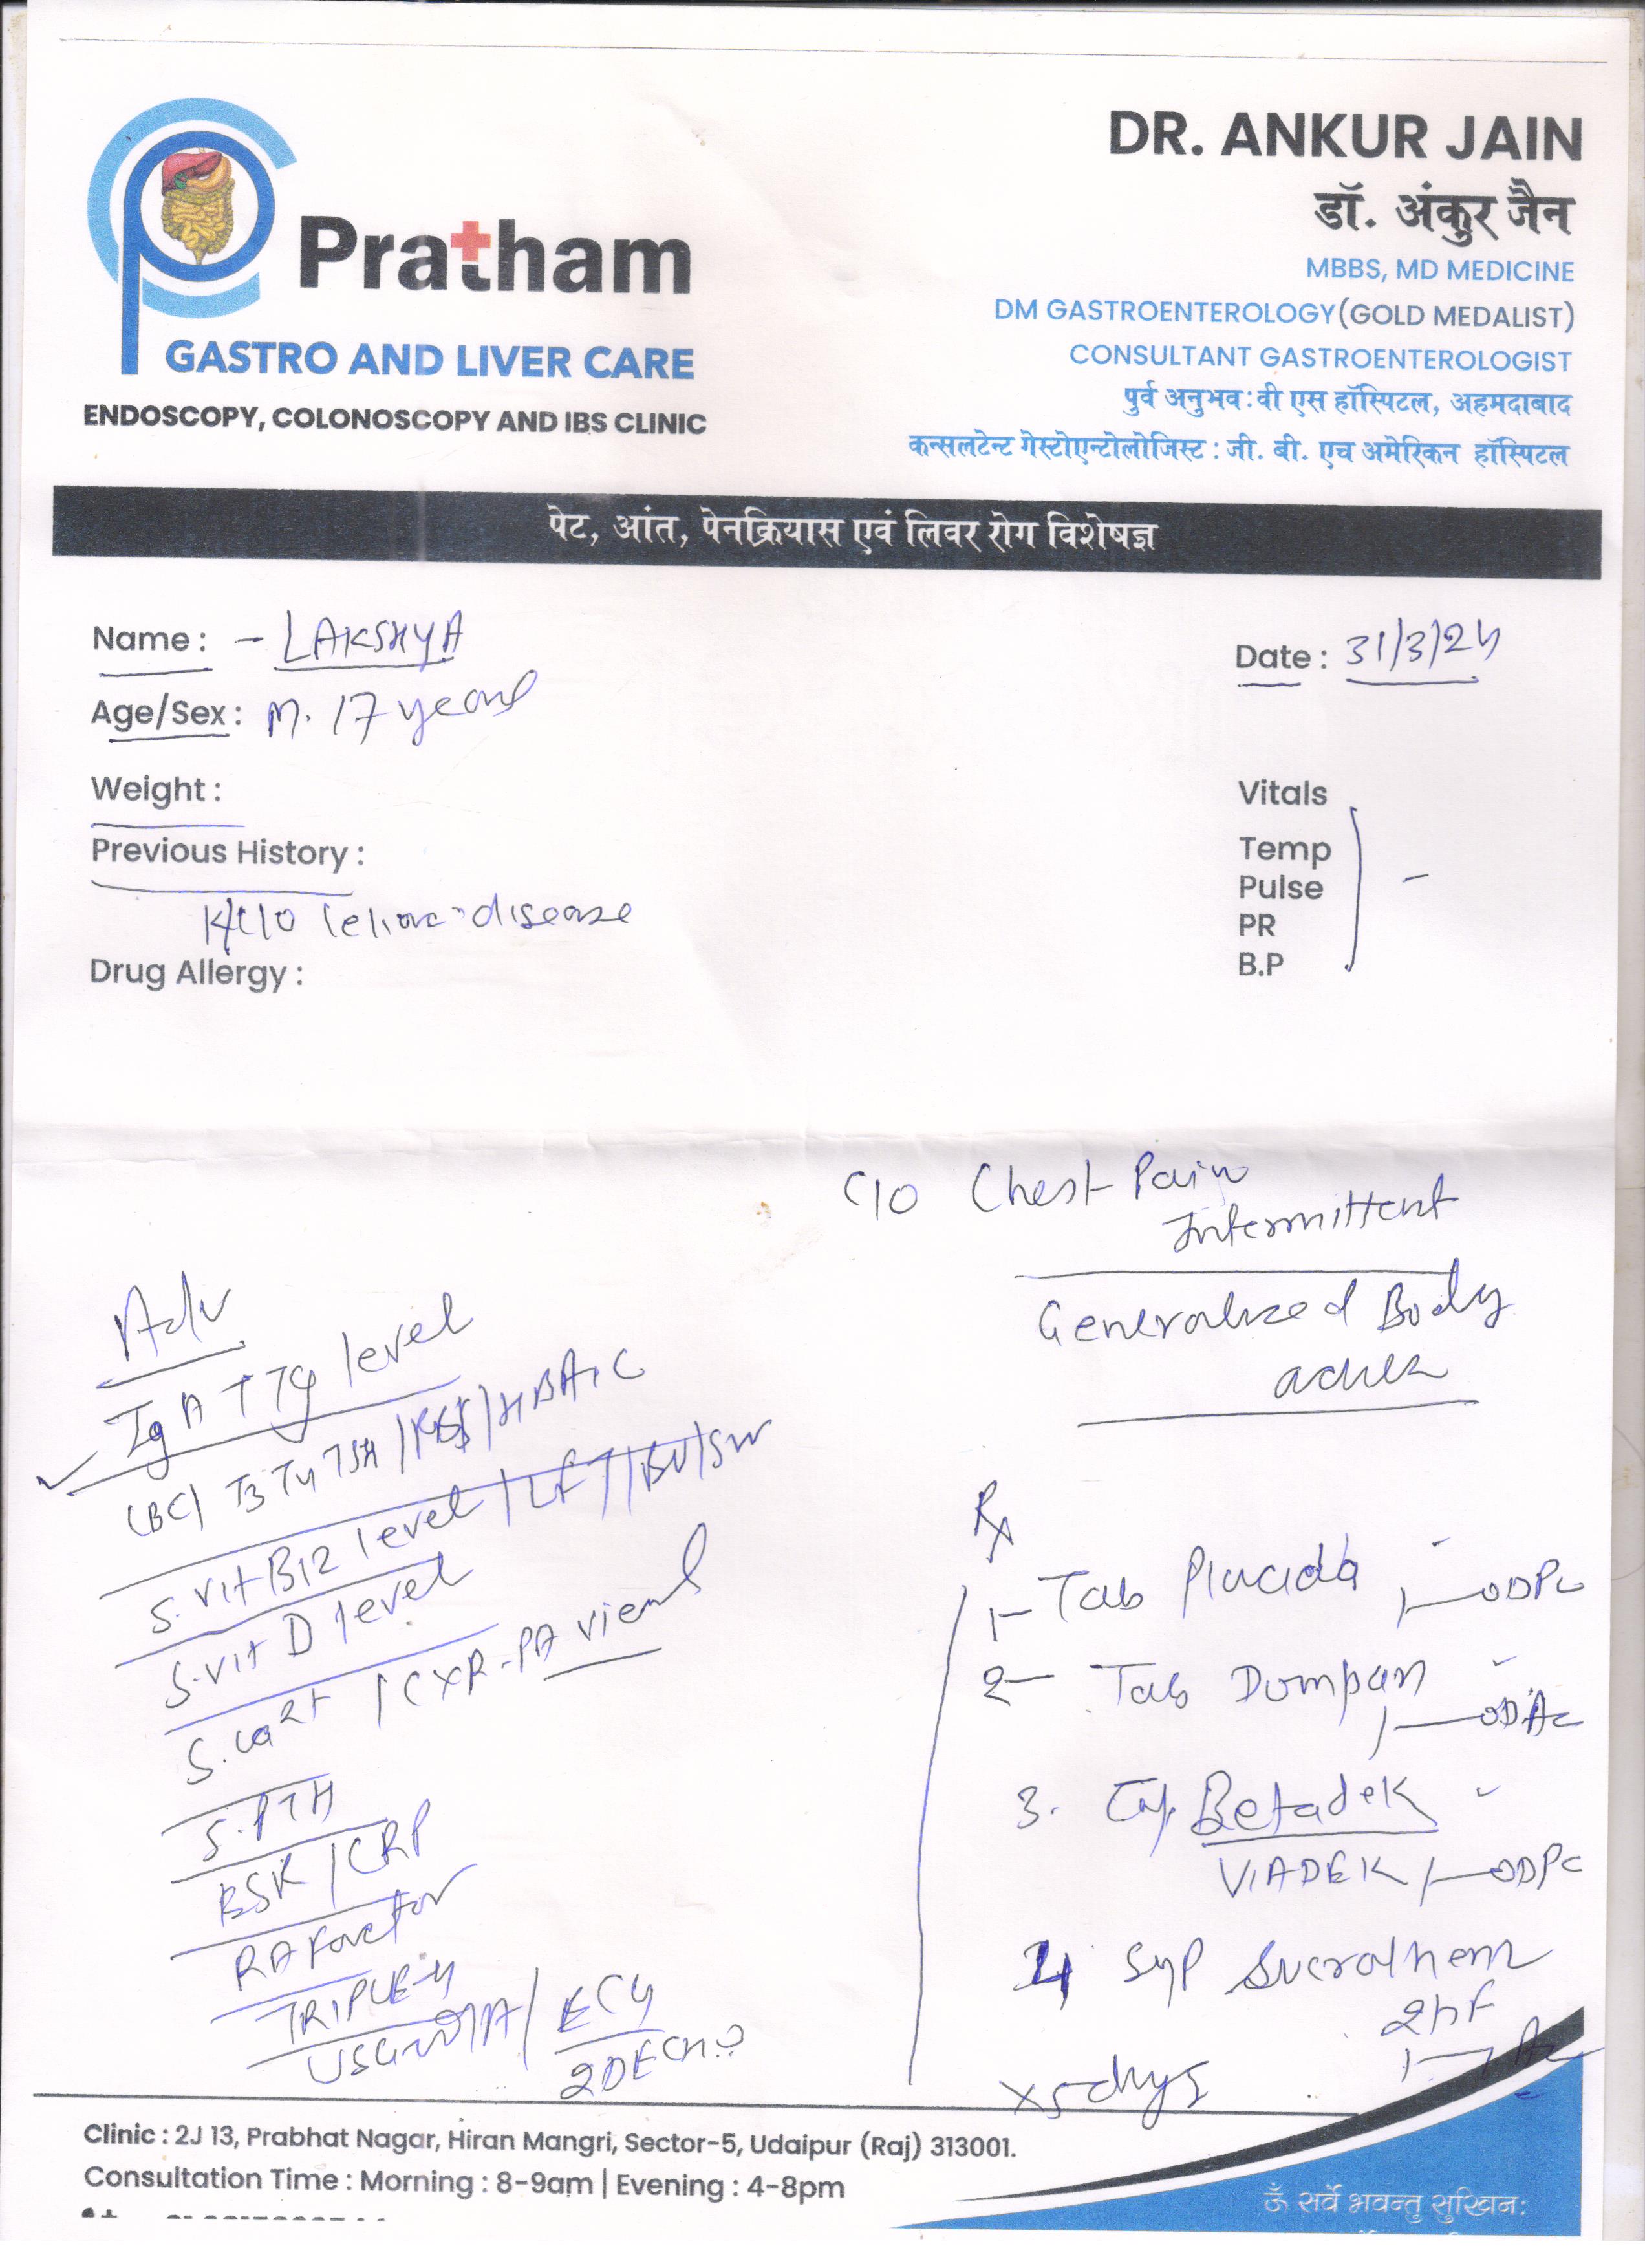 Pratham
GASTRO AND LIVER CARE
ENDOSCOPY, COLONOSCOPY AND IBS CLINIC
DR. ANKUR JAIN
डॉ. अंकुर जैन
MBBS, MD MEDICINE
DM GASTROENTEROLOGY(GOLD MEDALIST)
CONSULTANT GASTROENTEROLOGIST
पुर्व अनुभव : वी एस हॉस्पिटल, अहमदाबाद
कन्सलटेन्ट गेस्टोएन्टोलोजिस्ट : जी. बी. एच अमेरिकन हॉस्पिटल
पेट, आंत, पेनक्रियास एवं लिवर रोग विशेषज्ञ
Name : - LAKSHYA
Date : 31/3/24
Age/Sex : M. 17 years
Weight :
Previous History :
K/C/O Celiac-disease
Drug Allergy :
Vitals
Temp
Pulse
PR
B.P
C/O Chest Pain
Intermittent
Generalized Body
aches
Adv
IgA TTG level
CBC/ T3 T4 TSH / /HBA1C
S. Vit B12 level / LFT /
S. Vit D level
S. Ca2+ / CXR-PA view
S. PTH
ESR / CRP
RA Factor
TRIPLE-H
USG / ECG
2DECHO
Rx
1- Tab Placida 1—ODPC
2- Tab Dompan
1—ODAC
3. Cap. Betadek
VIADEK 1—ODPC
4 Syp
2
x5days
Clinic : 2J 13, Prabhat Nagar, Hiran Mangri, Sector-5, Udaipur (Raj) 313001.
Consultation Time : Morning : 8-9am | Evening : 4-8pm
ॐ सर्वे भवन्तु सुखिन: